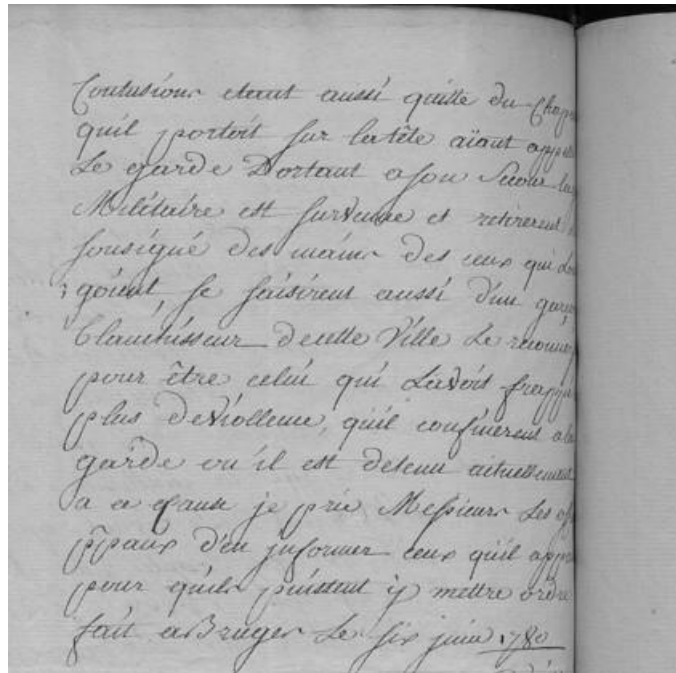 Contusions etant aussi quitte du Chap
quil portoit sur la tête aiant appe
Le garde Dortant a son Secour la
Militaire est survenue et retirerent
sousigné des mains des ceux qui L
goient, se saisirent aussi d'un garç
blanchisseur decette Ville Le reconnu
pour être celui qui L'avoit frappé
plus deviollence, quil confinerent a la
garde ou il est detenu actuellement
a a cause je prie Messieurs Les off
ppaux d'en informer ceux quil appa
pour quils puissent ÿ mettre ordre
fait a Bruges Le six juin 1780